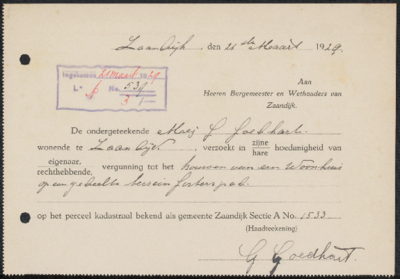 Zaandijk, den 26 sten Maart 1929.
Ingekomen 21 Maart 1929
L.ª 6 No. 534
3 1
Aan
Heeren Burgemeester en Wethouders van
Zaandijk.
De ondergeteekende Meij G Goedhart
wonende te Zaandijk, verzoekt in zijne hare hoedanigheid van
eigenaar, rechthebbende, vergunning tot het bouwen van een Woonhuis
op een gedeelte terrein
op het perceel kadastraal bekend als gemeente Zaandijk Sectie A No. 1533
(Handteekening)
G Goedhart.